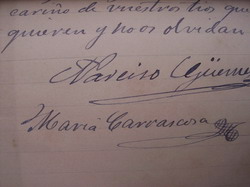 cariño de vuestros tios que
quieren y no os olvidan
Narciso Güemes
Maria Carrascosa